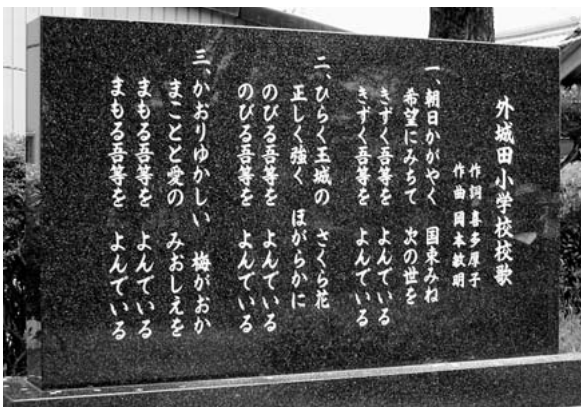 外城田小学校校歌
作詞 喜多厚子
作曲 岡本敏明
一、朝日かがやく 国束みね
希望にみちて 次の世を
きずく吾等を よんでいる
きずく吾等を よんでいる
二、ひらく玉城の さくら花
正しく強く ほがらかに
のびる吾等を よんでいる
のびる吾等を よんでいる
三、かおりゆかしい 梅がおか
まことと愛の みおしえを
まもる吾等を よんでいる
まもる吾等を よんでいる